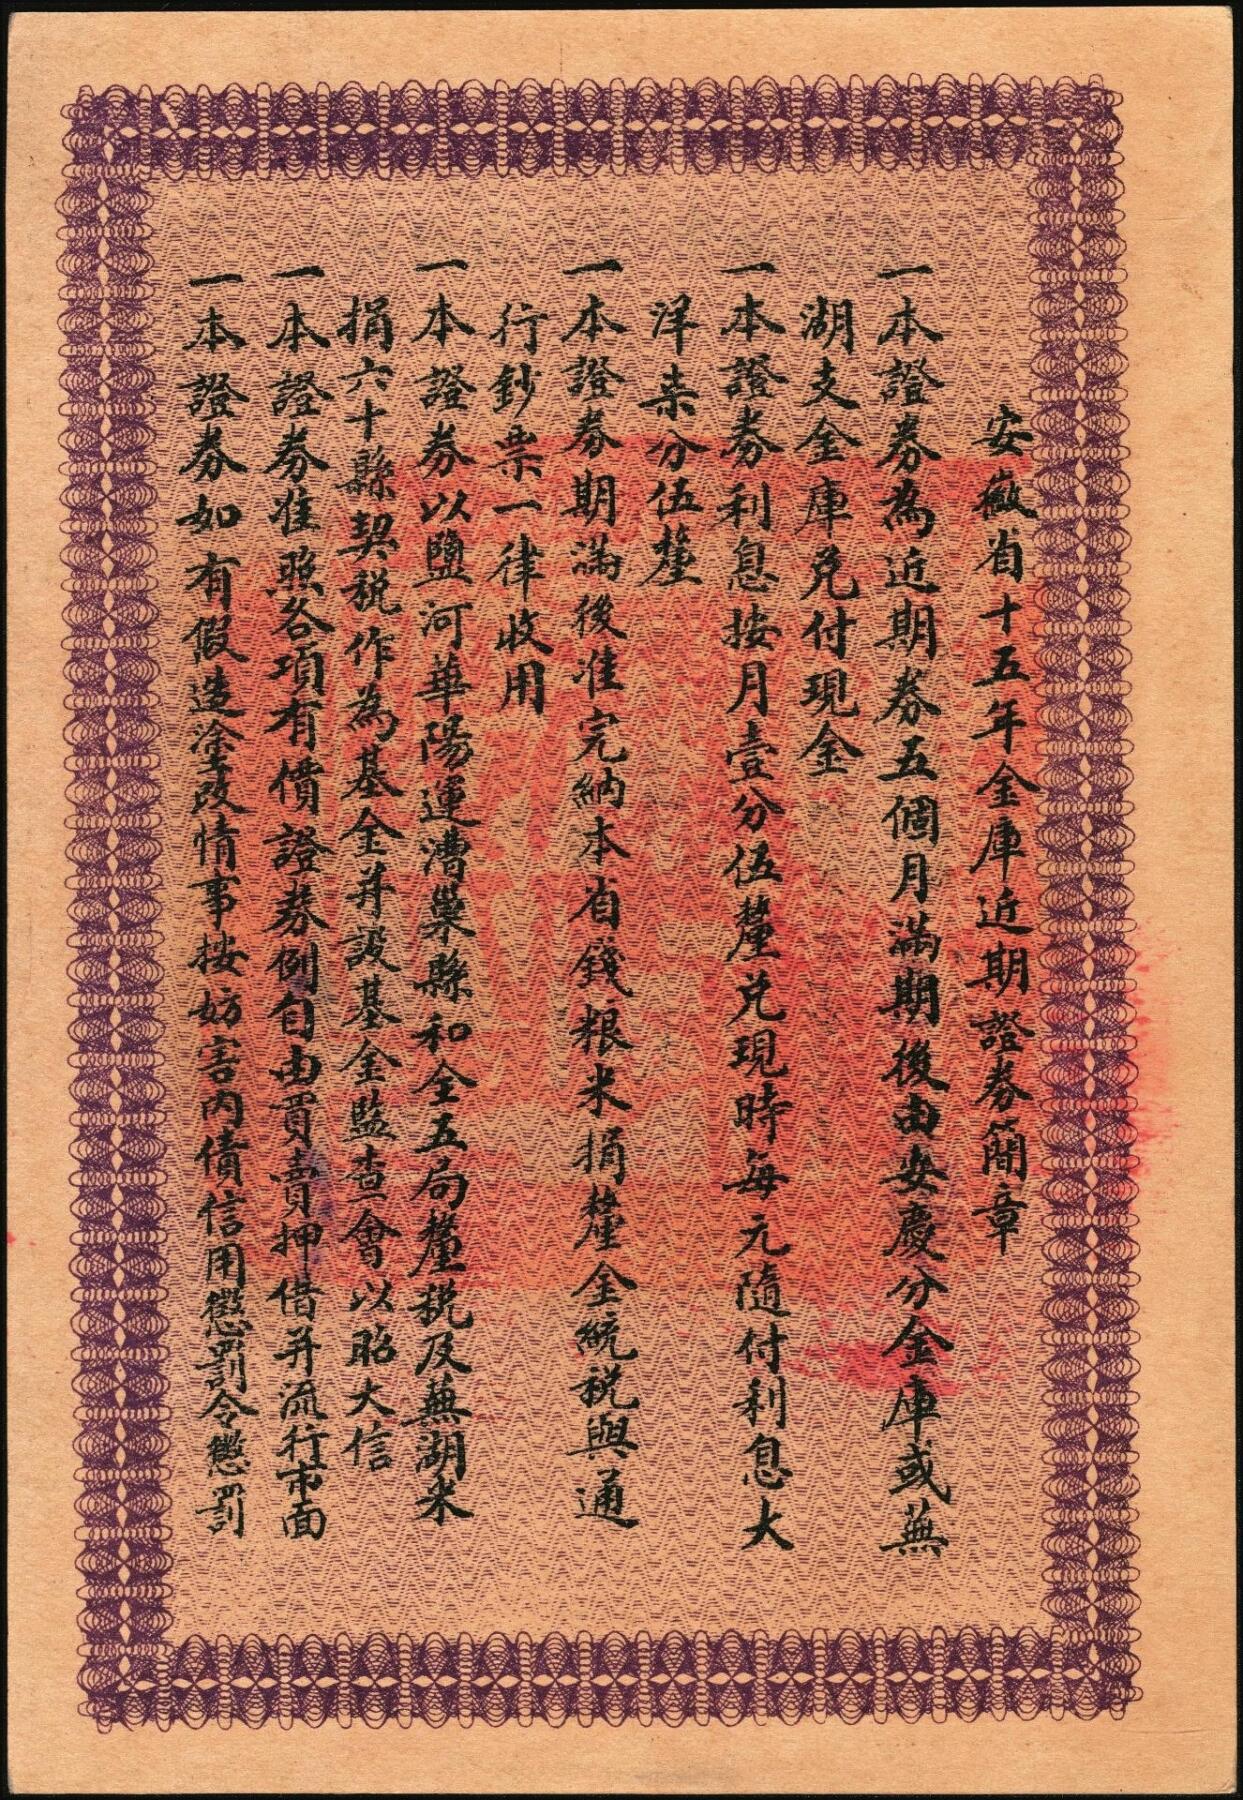 安徽省十五年金庫近期證券簡章
一本證券為近期券五個月滿期後由安慶分金庫或蕪
湖支金庫兌付現金
一本證券利息按月壹分伍釐兌現時每元隨付利息大
洋柒分伍釐
一本證券期滿後准完納本省錢粮米捐釐金統税與通
行鈔票一律收用
一本證券以鹽河華陽運漕巢縣和全五局釐税及蕪湖米
捐六十縣契税作為基金并設基金監查會以昭大信
一本證券准照各項有價證券例自由買賣押借并流行市面
一本證券如有假造塗改情事按妨害內債信用懲罰令懲罰